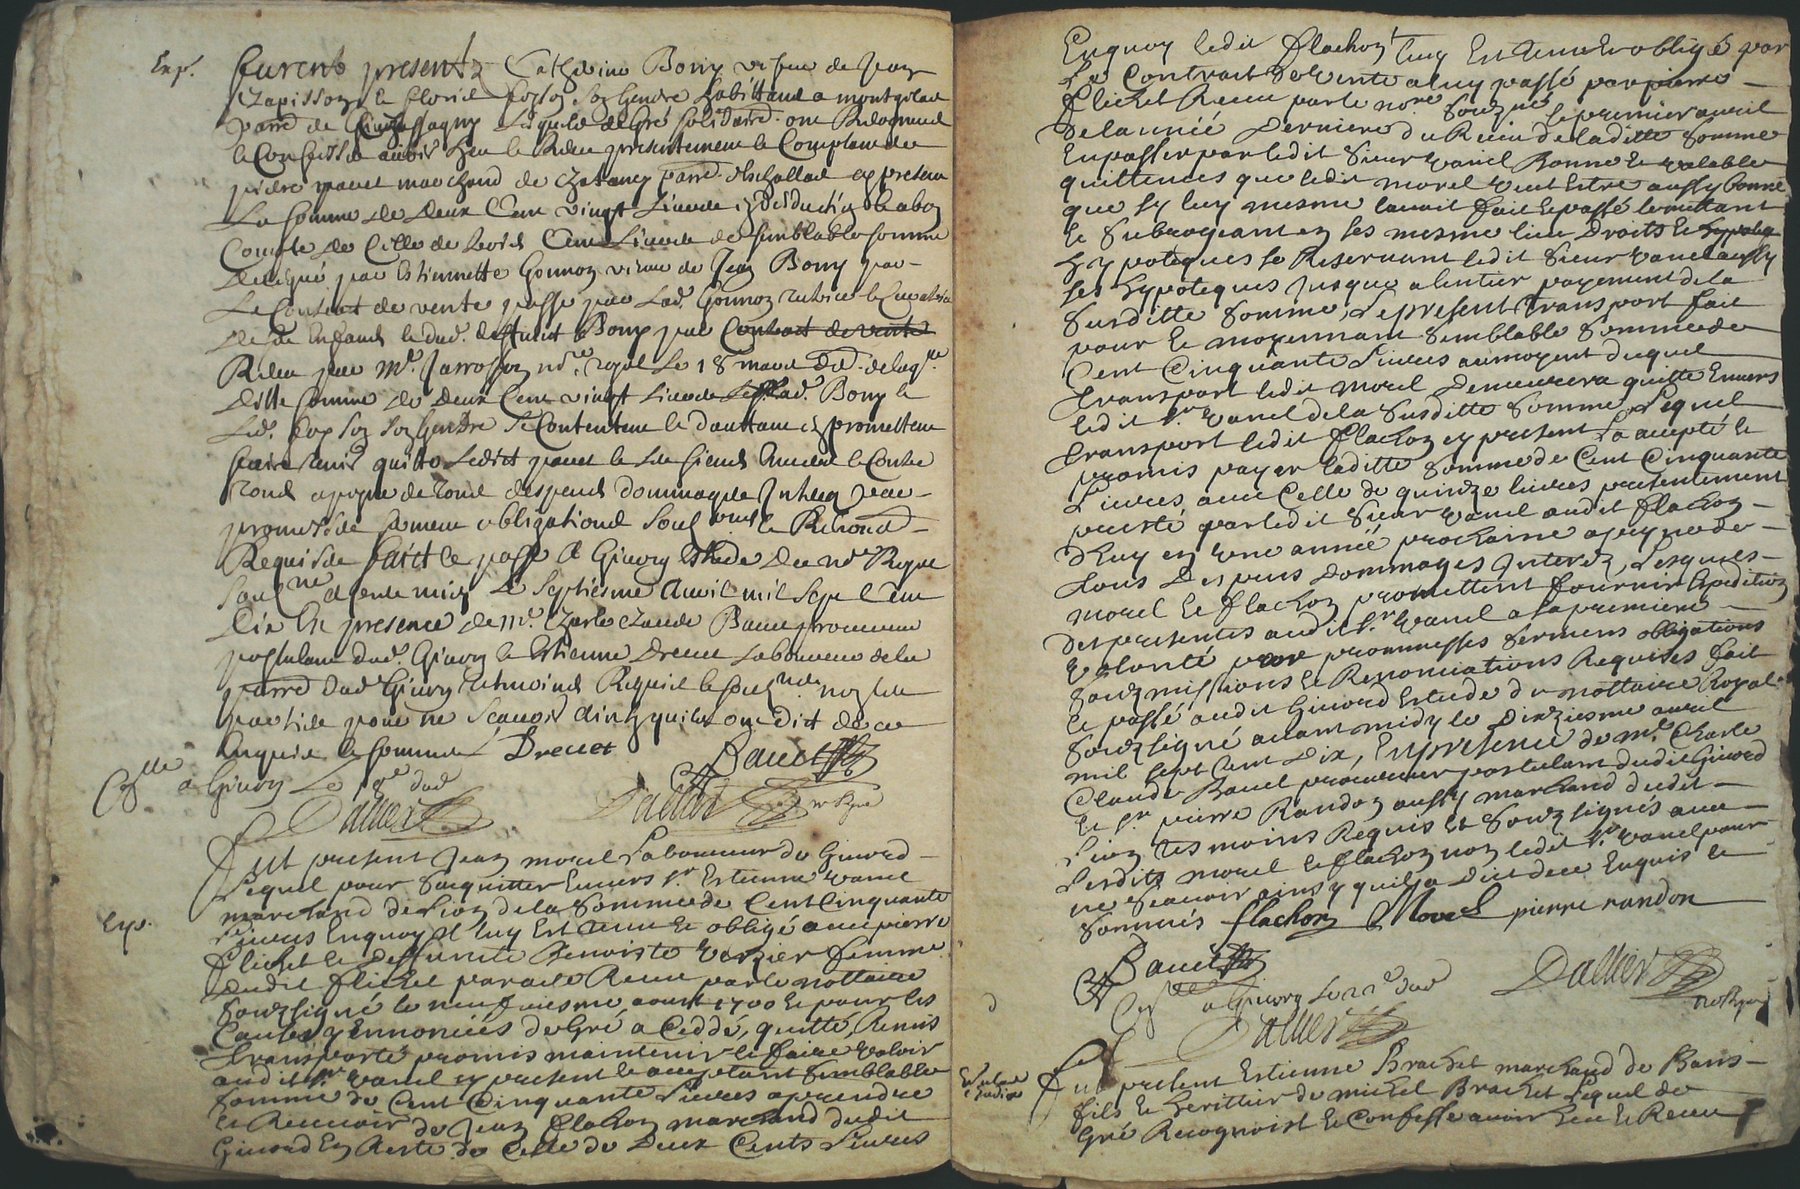 Exp.
furent presents Catherine Bony vefue de Jean
Chapisson le florid son Gendre habittant a
parre de lesquels de gré solidaire ont Recogneu
le Confessé auoir heu le Receu presentement le Comptant de
pierre marchand de parre ey present
La somme de Deux Cent vingt Liures en deduction le abon
Compte de Celle de Cent Liures de semblable somme
par Estiennette Gonnon vieue de Jean Bony par
Le Contract de vente passé par Lad. Gonnon
de ses Enfans le dud. deffunct Bony par Contract de vente
Receu par Me. Jarrosson nore. royal Le 18 mars
Ditte somme de Deux Cent vingt Liures Lad. Bony le
Led. son Gendre se Contentent le promettent
faire tenir quitte Ledict le les siens Enuers le Contre
tous a peyne de tous despens dommages Interestz par
promesse serment obligations soubmis le Renond
Requises faict le passé a Giuors Estude du nore Royal
soubne auant midy Le septiesme Auril mil sept Cent
Dix En presence de Me. Charle Claude Bauet procureur
postulant dud. Giuors le Estienne Dreuet Laboureur de la
parre dud Giuors tesmoins Requis le soubznes non les
parties pour ne scauoir ainsy quils ont dict de ce
Enquis le sommés Dreuet
Bauet
a Giuors Le 18e dud
Dallier Dallier no Ryal
Fut present Jean morel Laboureur de Giuord
Lequel pour sacquitter Enuers sr. Estienne vanel
marchand de Lion de la somme de Cent Cinquante
Exp.
Liures Enquoy Il luy Est tenu le obligé auec pierre
flichet le deffunte Benoiste Verzier femme
dudit flichet par acte Receu par le nottaire
souzsigné le neufuiesme aoust 1700 le pour les
Causes y Ennoncées de Gré a Ceddé, quitté, Remis
transporté promis maintenir le faire valoir
audit sr vanel ey present le acceptant semblable
somme de Cent Cinquante Liures a prendre
le Receuoir de Jean flachon marchand dudit
Giuord En Reste de Celle de Deux Cents Liures
Enquoy ledit flachon luy Est tenu le obligé par
Le Contract de vente a luy passé par pierre
flichet Receu par le nore souzne le premier auril
de lannée Derniere du Receu de laditte somme
En passer par ledit sieur vanel Bonne le valable
quittences que ledit morel veut Estre aussy bonne
que sy luy mesme lauoit fait le passé le mettant
le subrogeant en ses mesme lieu Droits le hypoteq
hypoteques se Reservant ledit sieur vanel aussy
ses hypoteques jusque a lentier payement de la
susditte somme, Le present transport fait
pour le moyennant semblable somme de
Cent Cinquante Liures au moyent duquel
transport ledit morel Demeurera quitte Enuers
ledit sr. vanel de la susditte somme Lequel
transport ledit flachon ey present La accepté le
promis payer laditte somme de Cent Cinquante
Liures, auec Celle de quinze liures presentement
presté par ledit sieur vanel audit flachon
Dhuy en vne année prochaine a peyne de
tous Despens Dommages Interez, Lesques
morel le flachon promettent fournir Expedition
des presentes audit sr. vanel a sa premiere
volonté par prommesses serments obligations
souzmissions le Renonciations Requises fait
le passé audit Giuord Estude du nottaire Royal
souzsigné auant midy le Dixziesme auril
mil sept Cent Dix, En presence de me. Charle
Claude Bauet procureur postulant dudit Giuord
Et sr. pierre Randon aussy marchand dudit
Lion tesmoins Requis le souzsignés auec
Lesdits morel le flachon non ledit sr vanel pour
ne scauoir ainsy quil a dict de ce Enquis le
sommés flachon Morel pierre randon
Bauet
Dallier
no Ryal
a Giuors Le 22e dud
Dallier
Fut present Estienne Brachet marchand de Bans
fils le herittier de michel Brachet Lequel de
Gré Recognoist le Confesse auoir heu le Receu